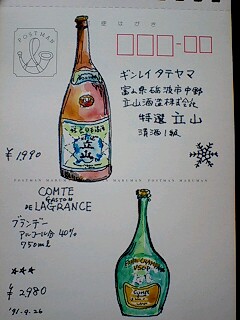 POSTMAN
郵便はがき
ギンレイ タテヤマ
富山県砺波市中野
立山酒造株式会社
特選 立山
清酒1級
立山
¥1990
POSTMAN
COMTE
GASTON
DE LAGRANCE
ブランデー
アルコール分 40%
750ml
★★★
¥2980
'91.9.26
FINE CHAMPAGNE
VSOP